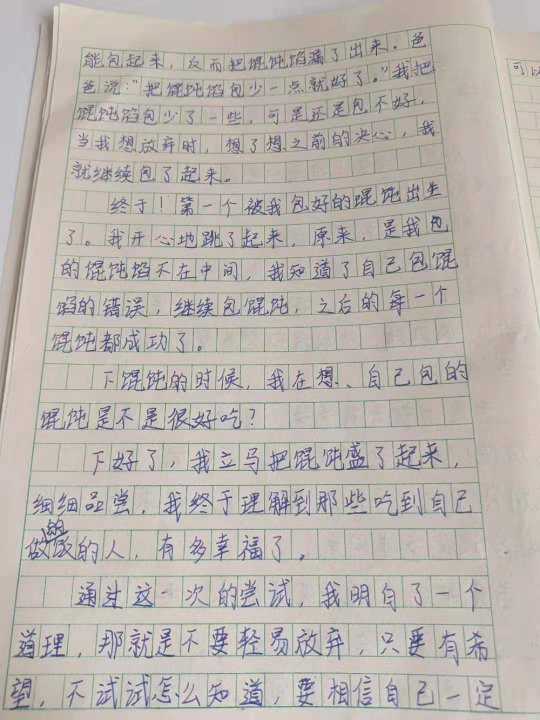 能包起来，反而把馄饨馅漏了出来。爸
爸说："把馄饨馅包少一点就好了。"我把
馄饨馅包少了一些，可是还是包不好，
当我想放弃时，想了想之前的决心，我
就继续包了起来。
终于！第一个被我包好的馄饨出生
了。我开心地跳了起来，原来，是我包
的馄饨馅不在中间，我知道了自己包馄
馅的错误，继续包馄饨，之后的每一个
馄饨都成功了。
下馄饨的时候，我在想、自己包的
馄饨是不是很好吃？
下好了，我立马把馄饨盛了起来，
细细品尝，我终于理解到那些吃到自己
做的饭的人，有多幸福了。
通过这一次的尝试，我明白了一个
道理，那就是不要轻易放弃，只要有希
望，不试试怎么知道，要相信自己一定
可以